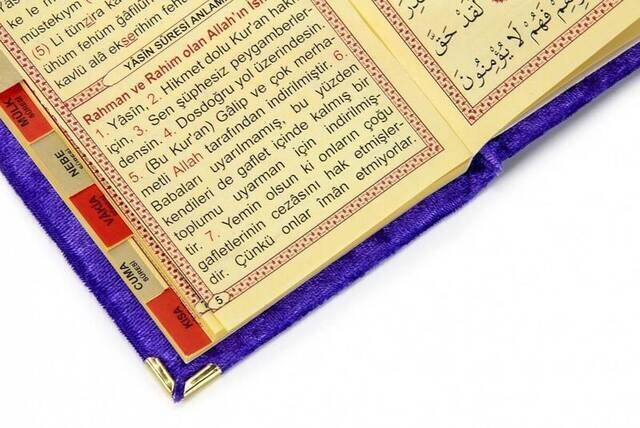 ke le m
müstekıym
(5) Li tünzira
ühüm fehüm ğâfilûn
kavlü alâ ekserihim fehüm
YASİN SÛRESİ ANLAMI
Rahman ve Rahim olan Allah'ın is
1. Yâsîn, 2. Hikmet dolu Kur'an hakkı
için, 3. Sen şüphesiz peygamberler-
densin. 4. Dosdoğru yol üzerindesin.
5. (Bu Kur'an) Gâlip ve çok merha-
metli Allah tarafından indirilmiştir. 6.
Babaları uyarılmamış, bu yüzden
kendileri de gaflet içinde kalmış bir
toplumu uyarman için indirilmiş-
tir. 7. Yemin olsun ki onların çoğu
gafletlerinin cezâsını hak etmişler-
dir. Çünkü onlar îmân etmiyorlar.
5
MÜLK
SÛRESİ
NEBE
VAKIA
CUMA
SÛRESİ
KISA
لَقَدْ حَقَّ
فَهُمْ لَا يُؤْمِنُونَ